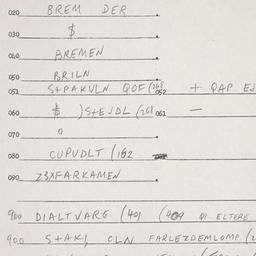 020 BREM DER
030 $
040 BREMEN
050 BRILN
051 S+PAKULN QOF (268 052 + QAP EJ
060 $ )S+EJDL (268 061 —
070 0
080 CUPUDLT (162
090 Z3XFARKAMEN
900 DIALTVARG (401 (409 QI ELTERE
900 S+AKI CLN FARLEZDEMLOMP (2